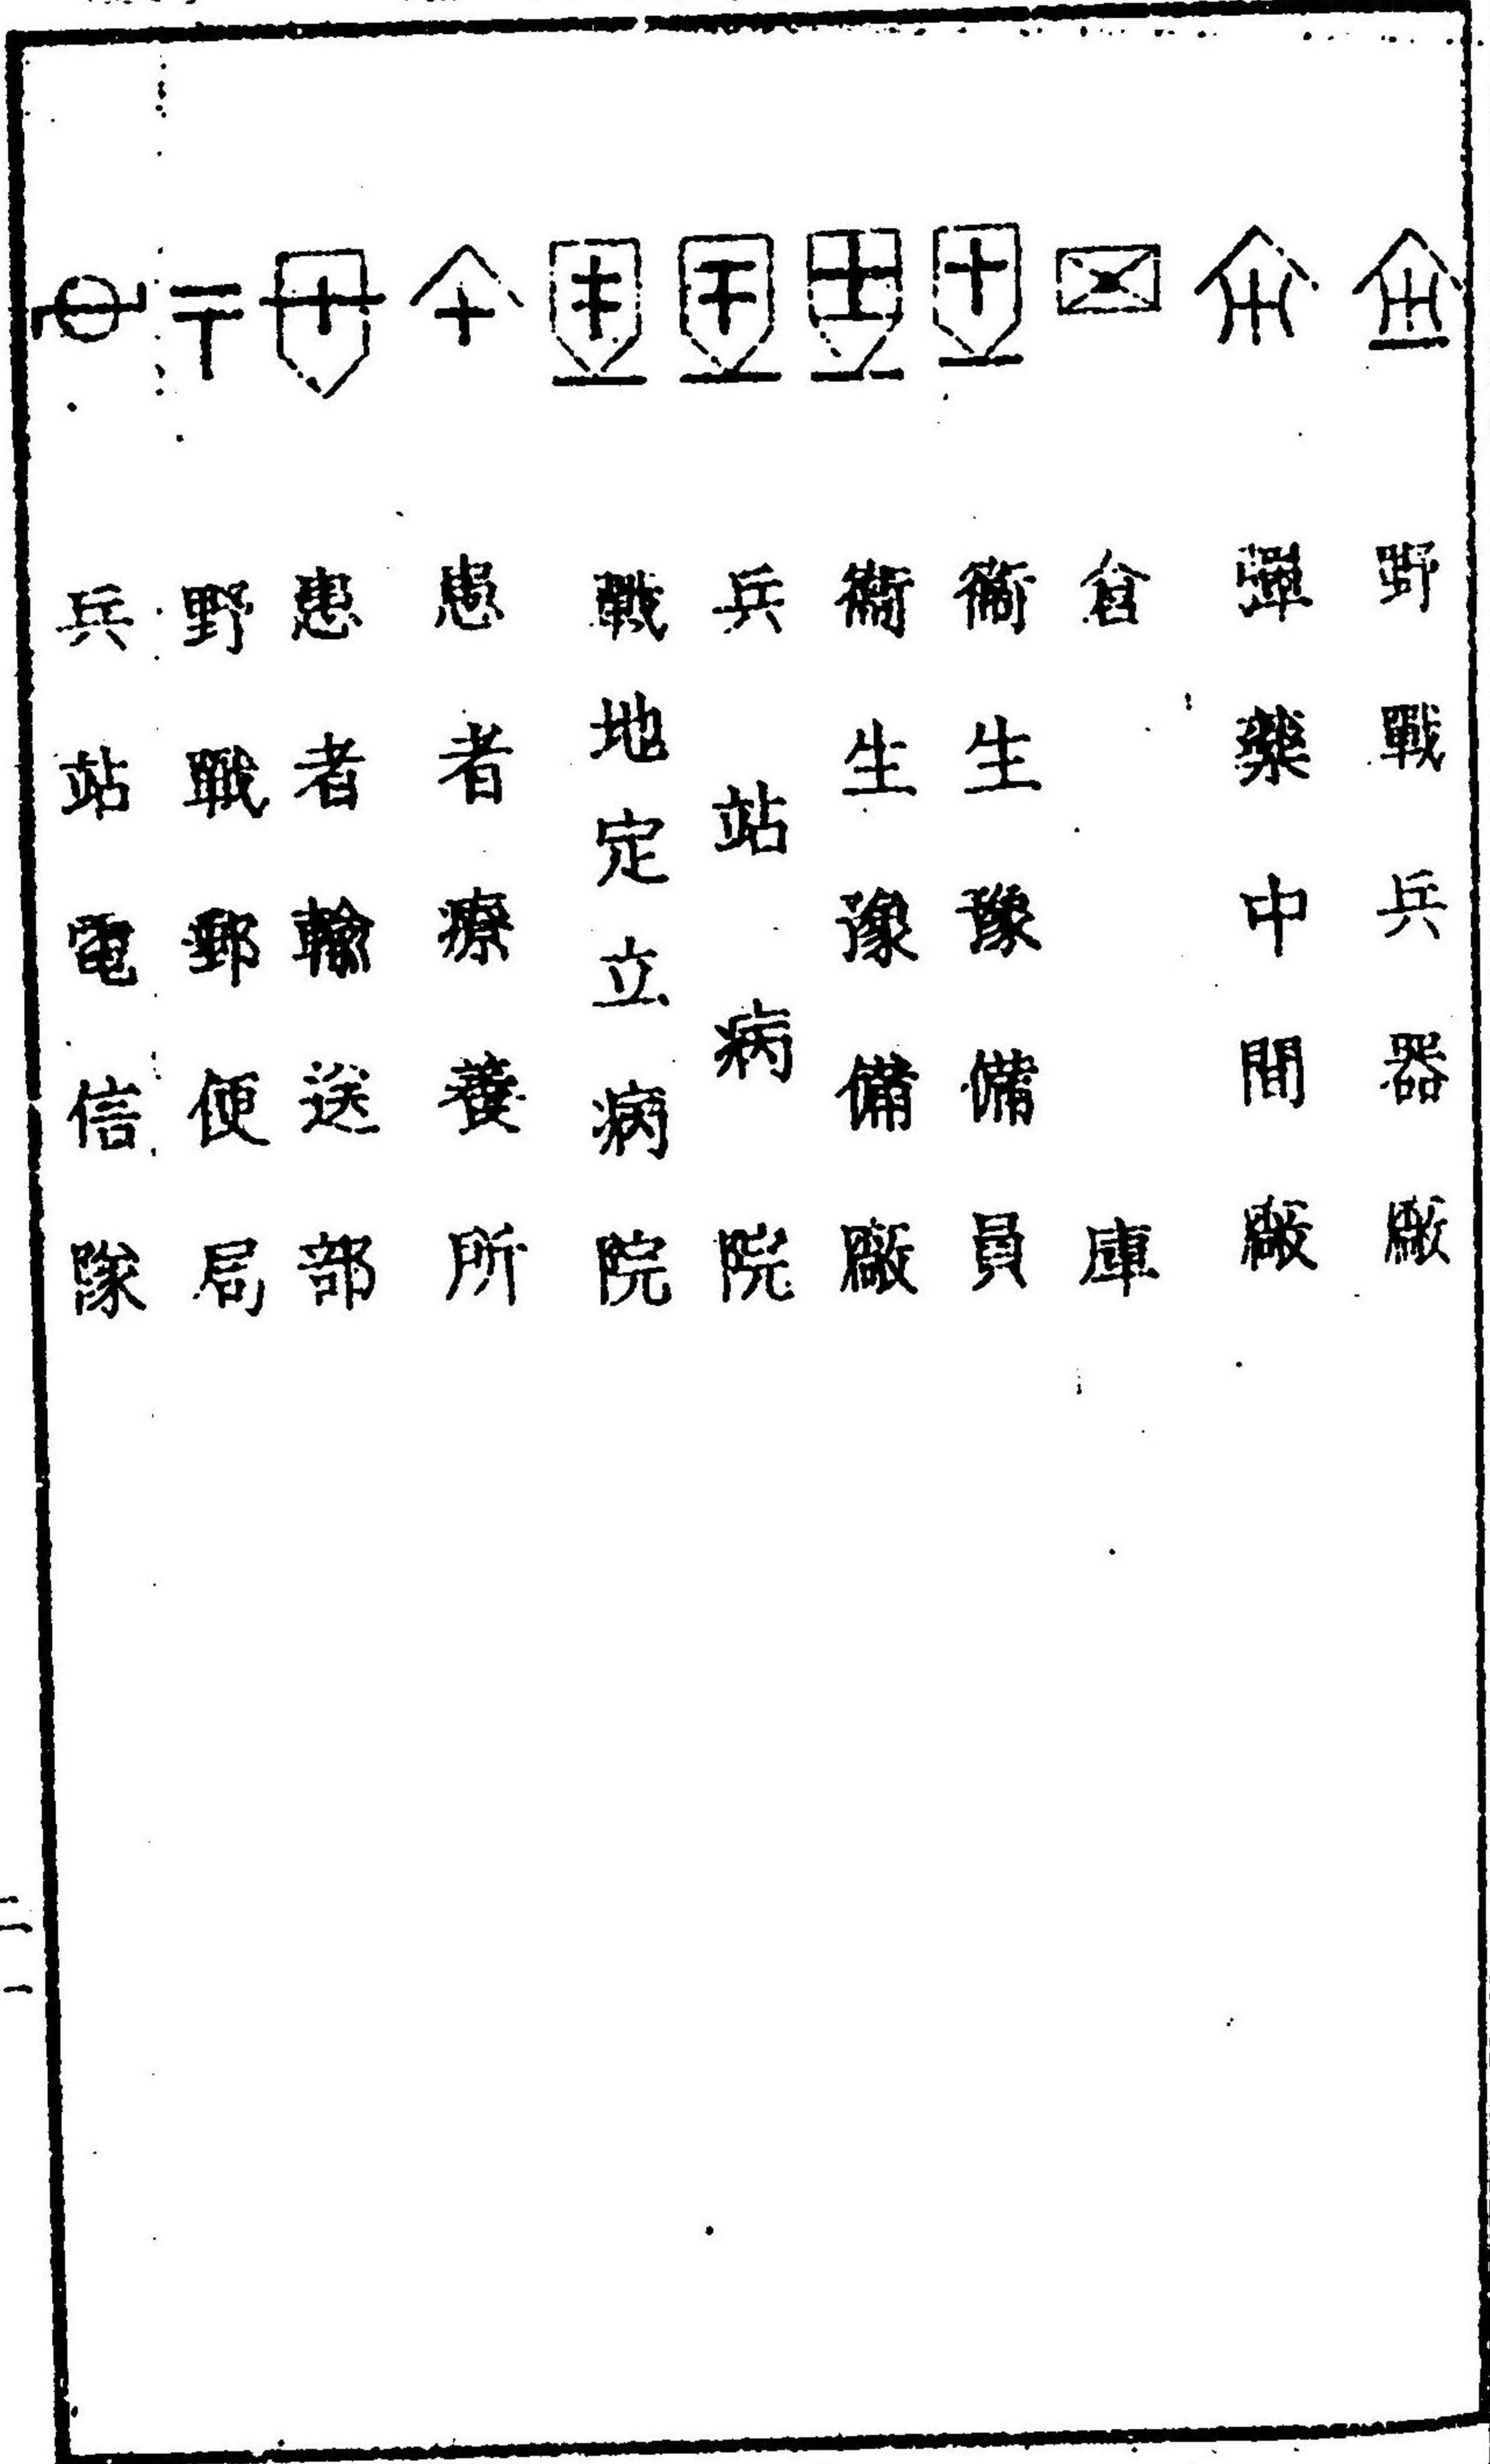 野戰兵器廠
彈藥中間廠
倉庫
衞生豫備員
衞生豫備廠
兵站病院
戰地定立病院
患者療養所
患者輸送部
野戰郵便局
兵站電信隊